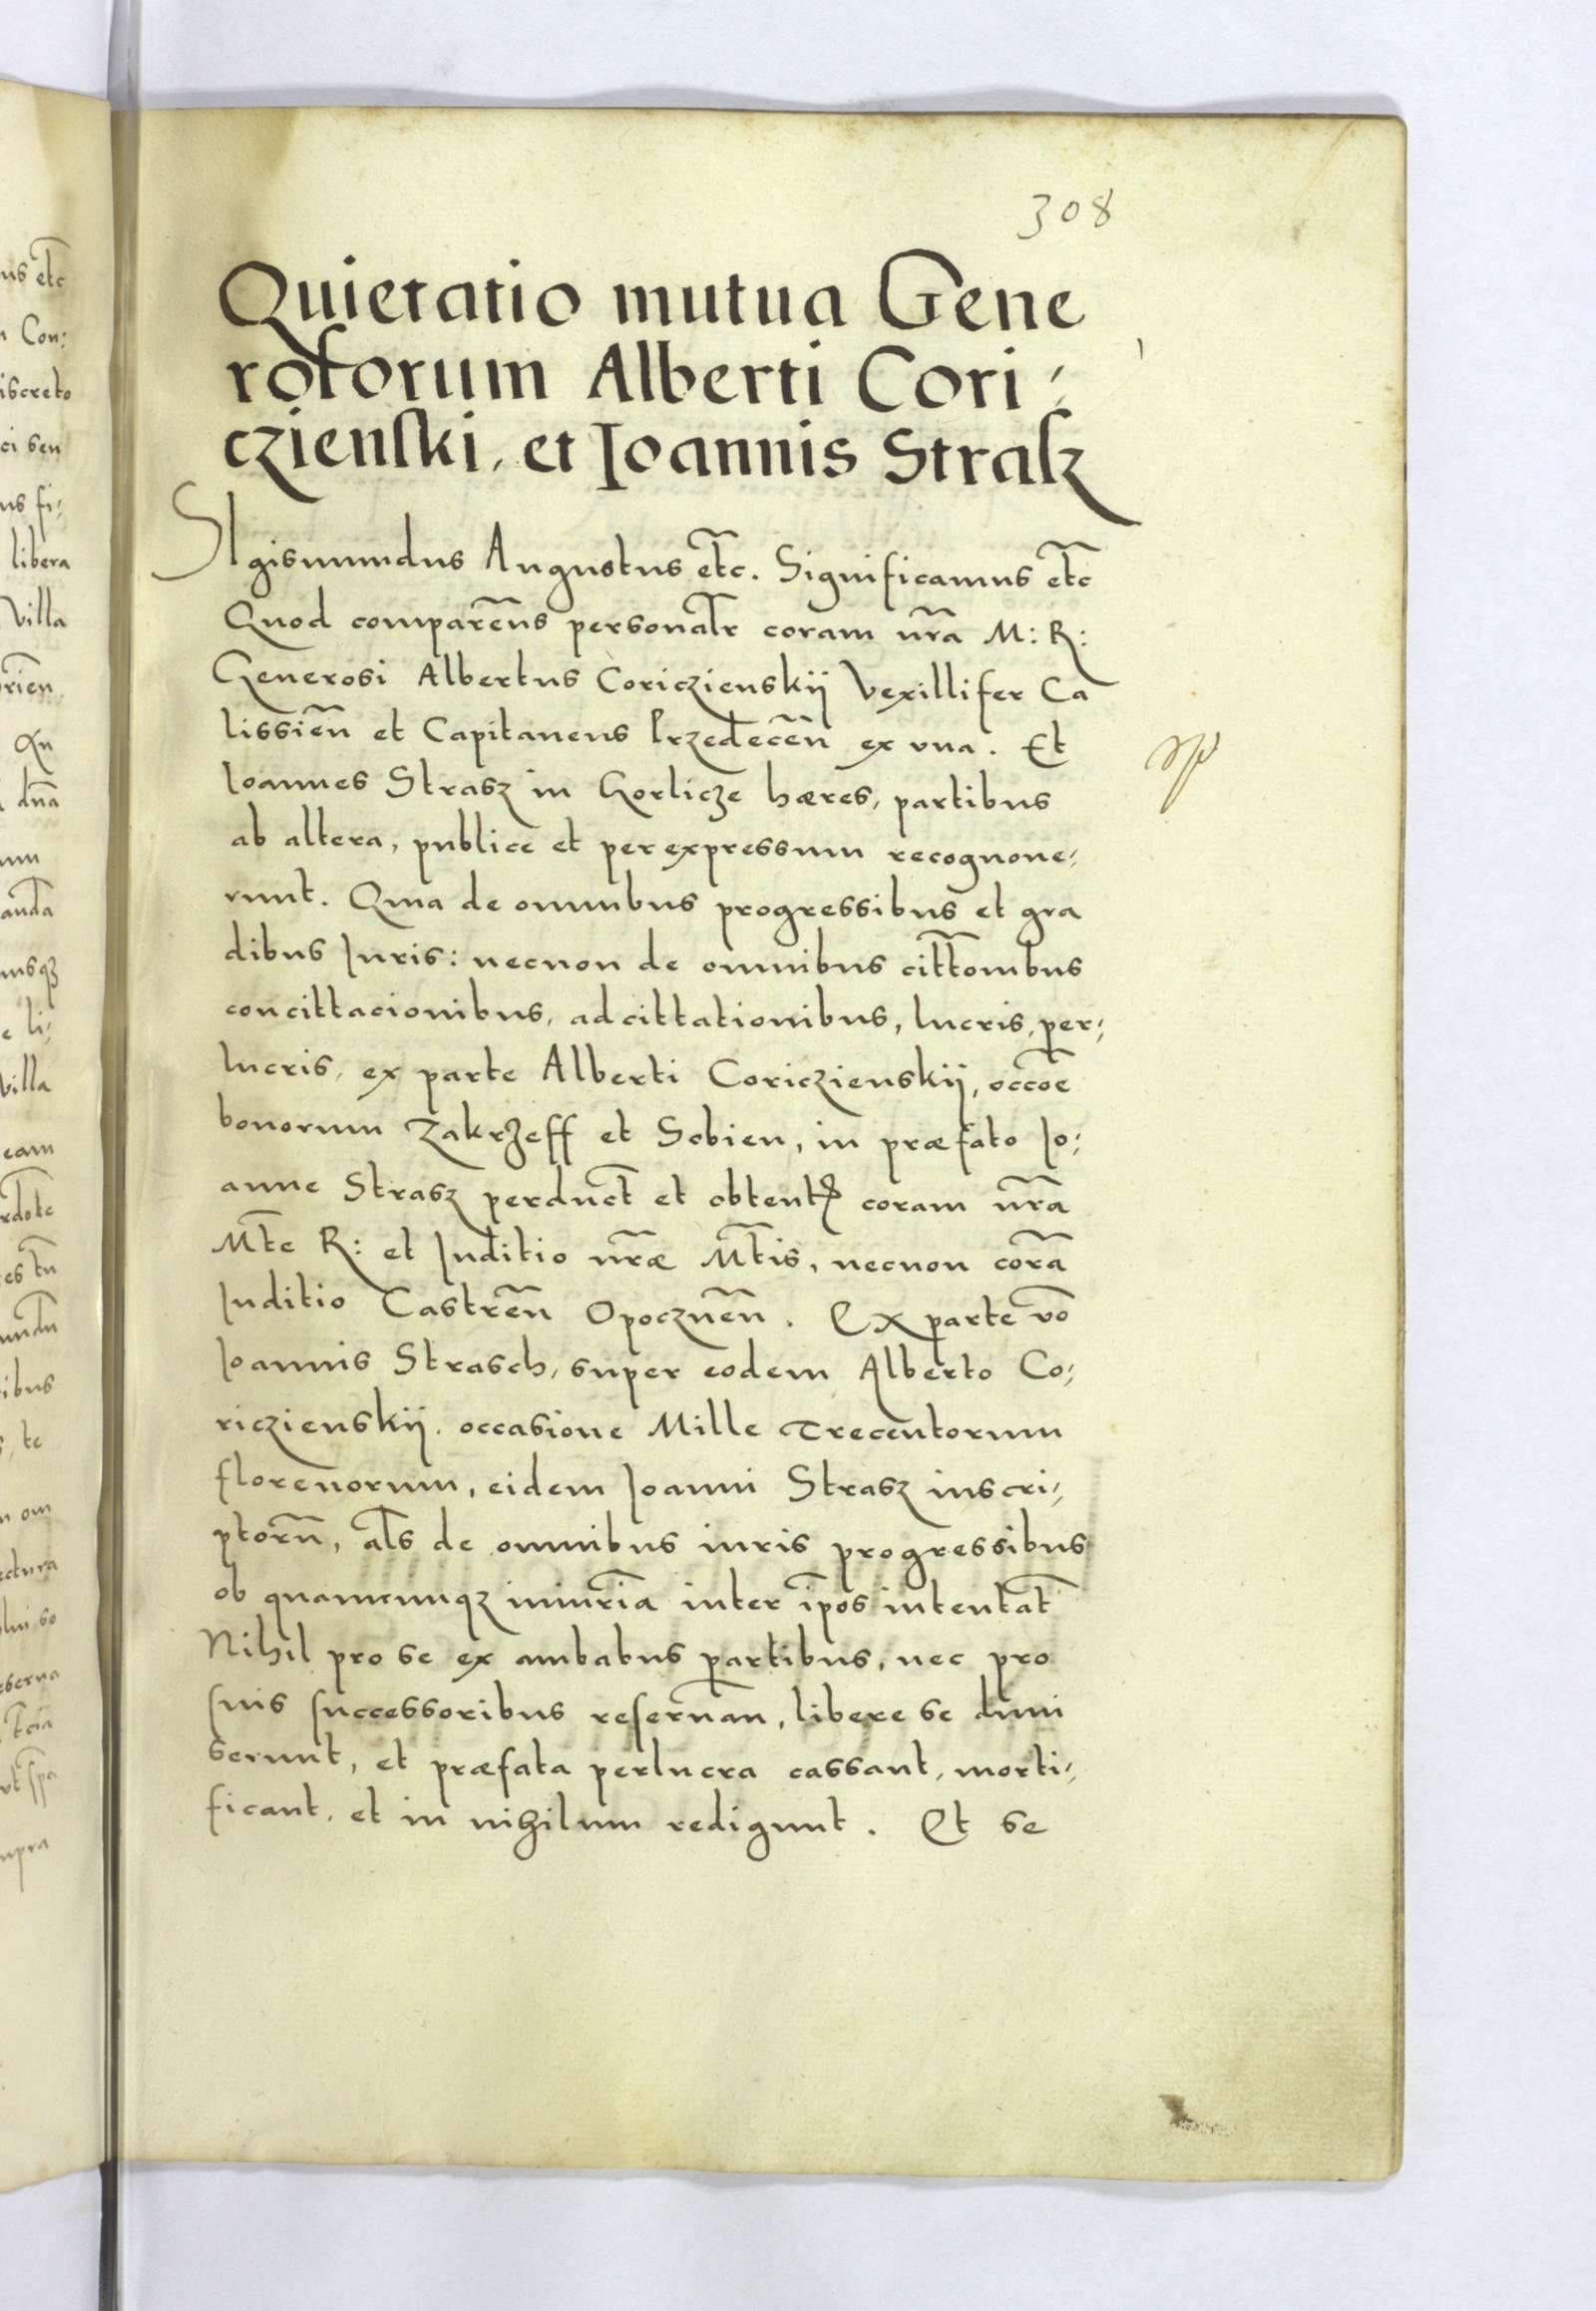 308
Quietatio mutua Gene
roſorum Alberti Cori⸗
czienſki, et Ioannis Straſz
SIgismundus Augustus etc̃. Significamus etc̃
Quod comparen̄s personalr̃ coram nr̃a M: R:
Generosi Albertus Coriczienskij Vexillifer Ca
lissien̄ et Capitaneus Przedecen̄ ex vna. Et
Ioannes Strasz in Gorlicze hæres, partibus
ab altera, publice et per expressum recognoue⸗
runt. Quia de omnibus progressibus et gra
dibus Iuris: necnon de omnibus citt̃onibus
concittacionibus, adcittationibus, lucris, per⸗
lucris, ex parte Alberti Coriczienskij, occõe
bonorum Zakrzeff et Sobien, in præfato Io⸗
anne Strasz perduct̃ et obtentꝭ coram nr̃a
Mt̃e R: et Iuditio nr̃æ Mt̃is, necnon corã
Iuditio Castren̄ Opocznen̄. Ex parte vo̅
Ioannis Strasch, super eodem Alberto Co⸗
riczienskij. occasione Mille Trecentorum
florenorum, eidem Ioanni Strasz inscri⸗
ptorū, al̃s de omnibus iuris progressibus
ob quamcunqz iniuriã inter ip̃os intentat̃
Nihil pro se ex ambabus partibus, nec pro
suis successoribus reseruan̄, libere se dimi
serunt, et præfata perlucra cassant, morti⸗
ficant, et in nihilum redigunt. Et se